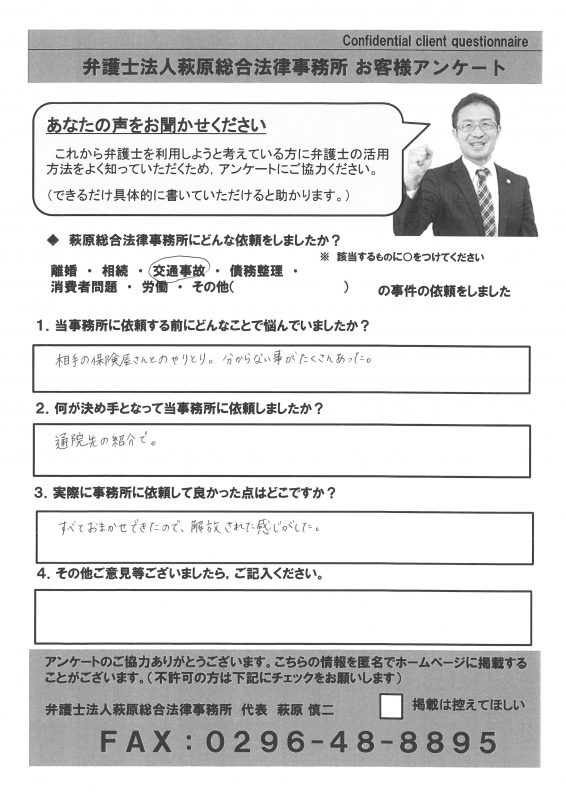 Confidential client questionnaire
弁護士法人萩原総合法律事務所 お客様アンケート
あなたの声をお聞かせください
これから弁護士を利用しようと考えている方に弁護士の活用
方法をよく知っていただくため，アンケートにご協力ください。
（できるだけ具体的に書いていただけると助かります。）
◆ 萩原総合法律事務所にどんな依頼をしましたか？
※ 該当するものに○をつけてください
離婚 ・ 相続 ・ 交通事故 ・ 債務整理 ・
消費者問題 ・ 労働 ・ その他(　　　　　　　) の事件の依頼をしました
1．当事務所に依頼する前にどんなことで悩んでいましたか？
相手の保険屋さんとのやりとり。分からない事がたくさんあった。
2．何が決め手となって当事務所に依頼しましたか？
通院先の紹介で。
3．実際に事務所に依頼して良かった点はどこですか？
すべておまかせできたので、解放された感じがした。
4．その他ご意見等ございましたら，ご記入ください。
アンケートのご協力ありがとうございます。こちらの情報を匿名でホームページに掲載する
ことがございます。（不許可の方は下記にチェックをお願いします）
弁護士法人萩原総合法律事務所 代表 萩原 慎二
掲載は控えてほしい
FAX：0296-48-8895